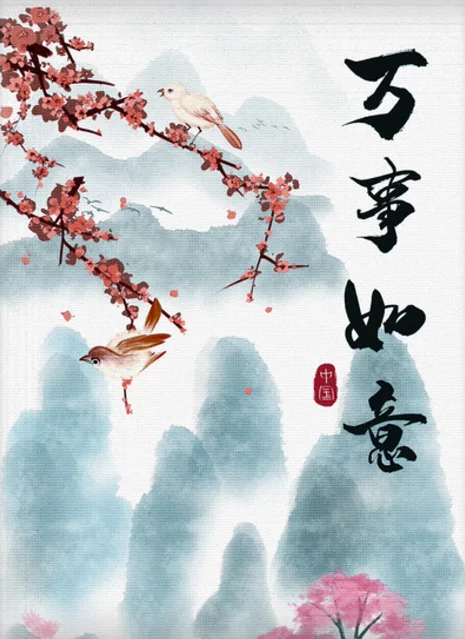 万事如意
中国